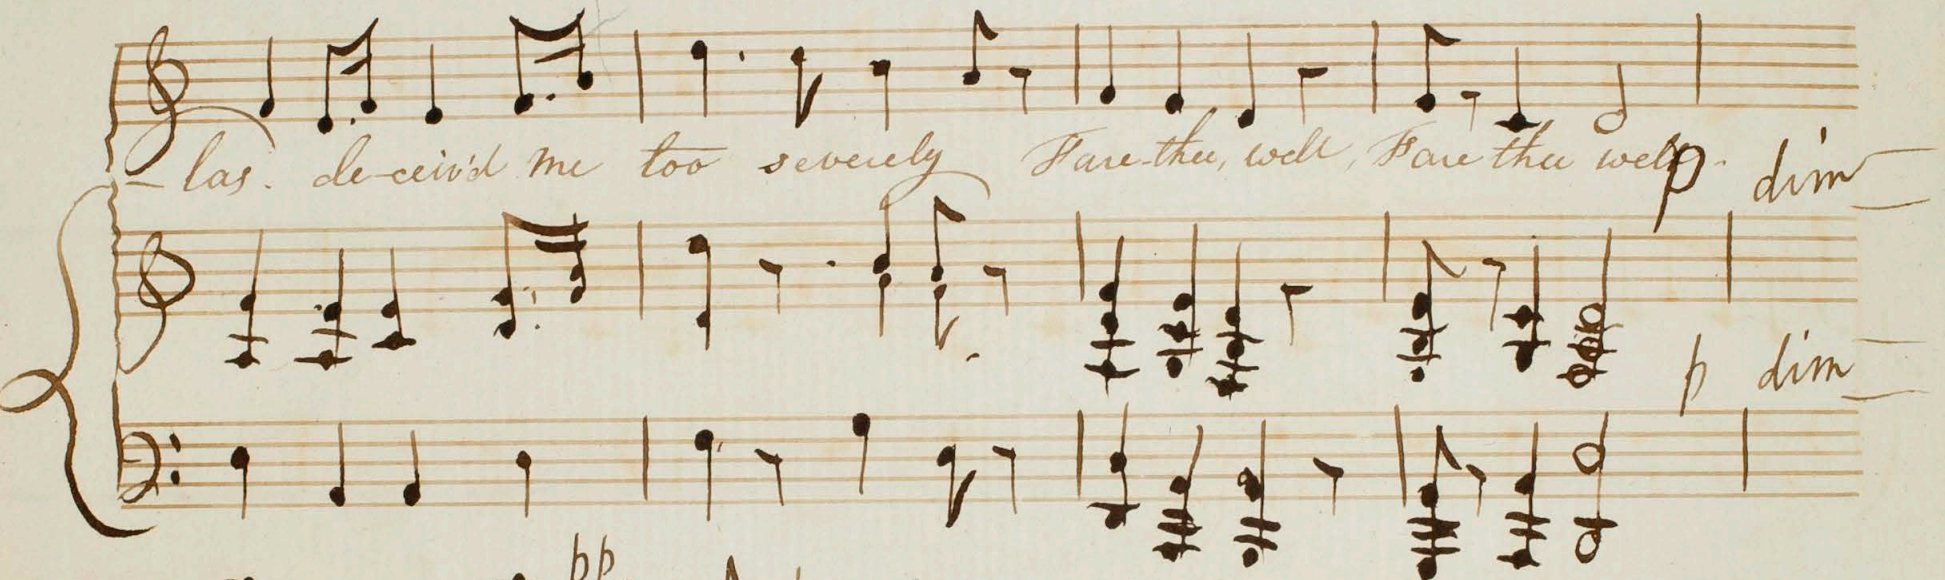 - las. de-ceiv'd me too severely Fare-thee, well, Fare thee well.
p dim
p dim
pp